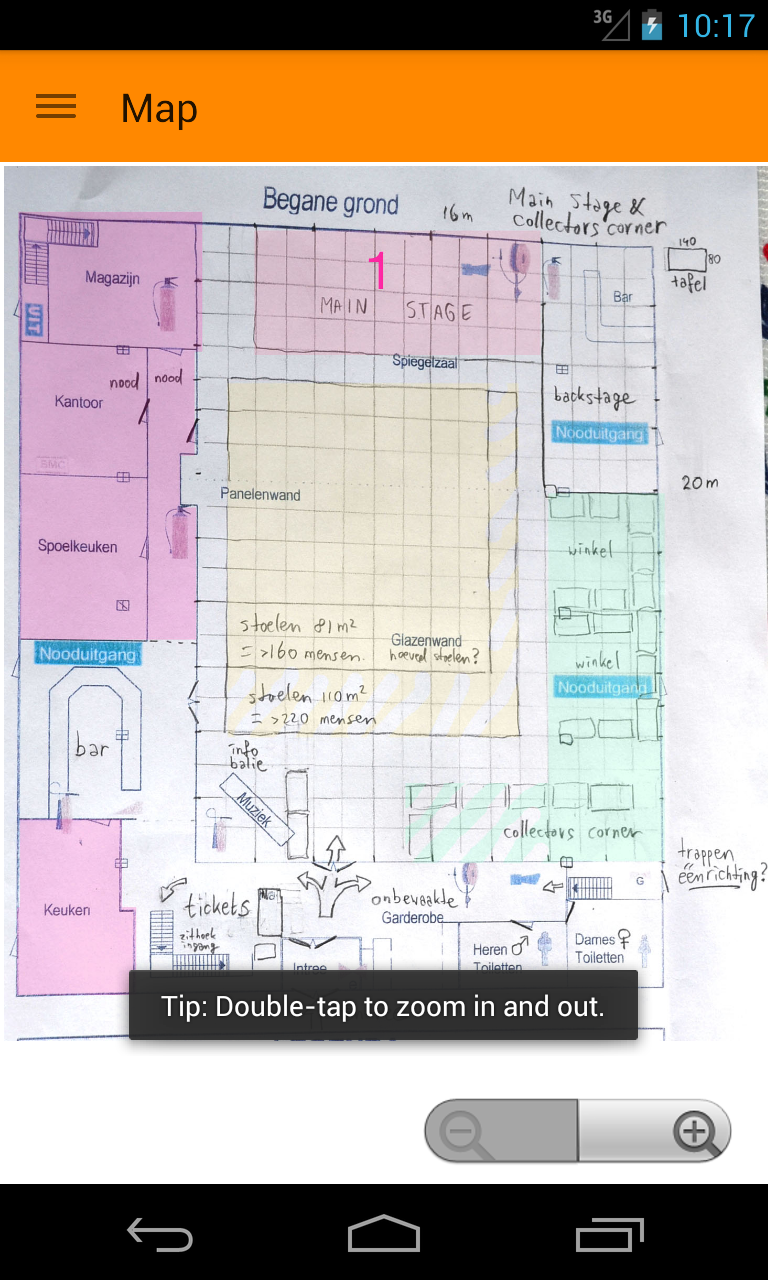 3G
10:17
Map
Begane grond
16m
Main Stage &
collectors corner
140
80
tafel
Magazijn
UIT
1
MAIN STAGE
Bar
Spiegelzaal
nood nood
Kantoor
backstage
Nooduitgang
BMC
Panelenwand
20m
Spoelkeuken
winkel
stoelen 81m²
= >160 mensen.
Glazenwand
hoeveel stoelen?
Nooduitgang
winkel
Nooduitgang
stoelen 110m²
= >220 mensen
bar
info
balie
Muziek
collectors corner
trappen
éénrichting?
Keuken
tickets
zithoek
ingang
onbewaakte
Garderobe
G
Heren
Toiletten
Dames
Toiletten
Intree
Tip: Double-tap to zoom in and out.